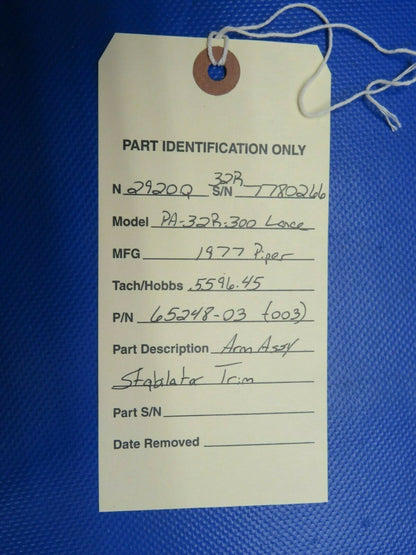 PART IDENTIFICATION ONLY
N 2920Q S/N 32R 7780266
Model PA-32R-300 Lance
MFG 1977 Piper
Tach/Hobbs 5596.45
P/N 65248-03 (003)
Part Description Arm Assy
Stabilator Trim
Part S/N
Date Removed